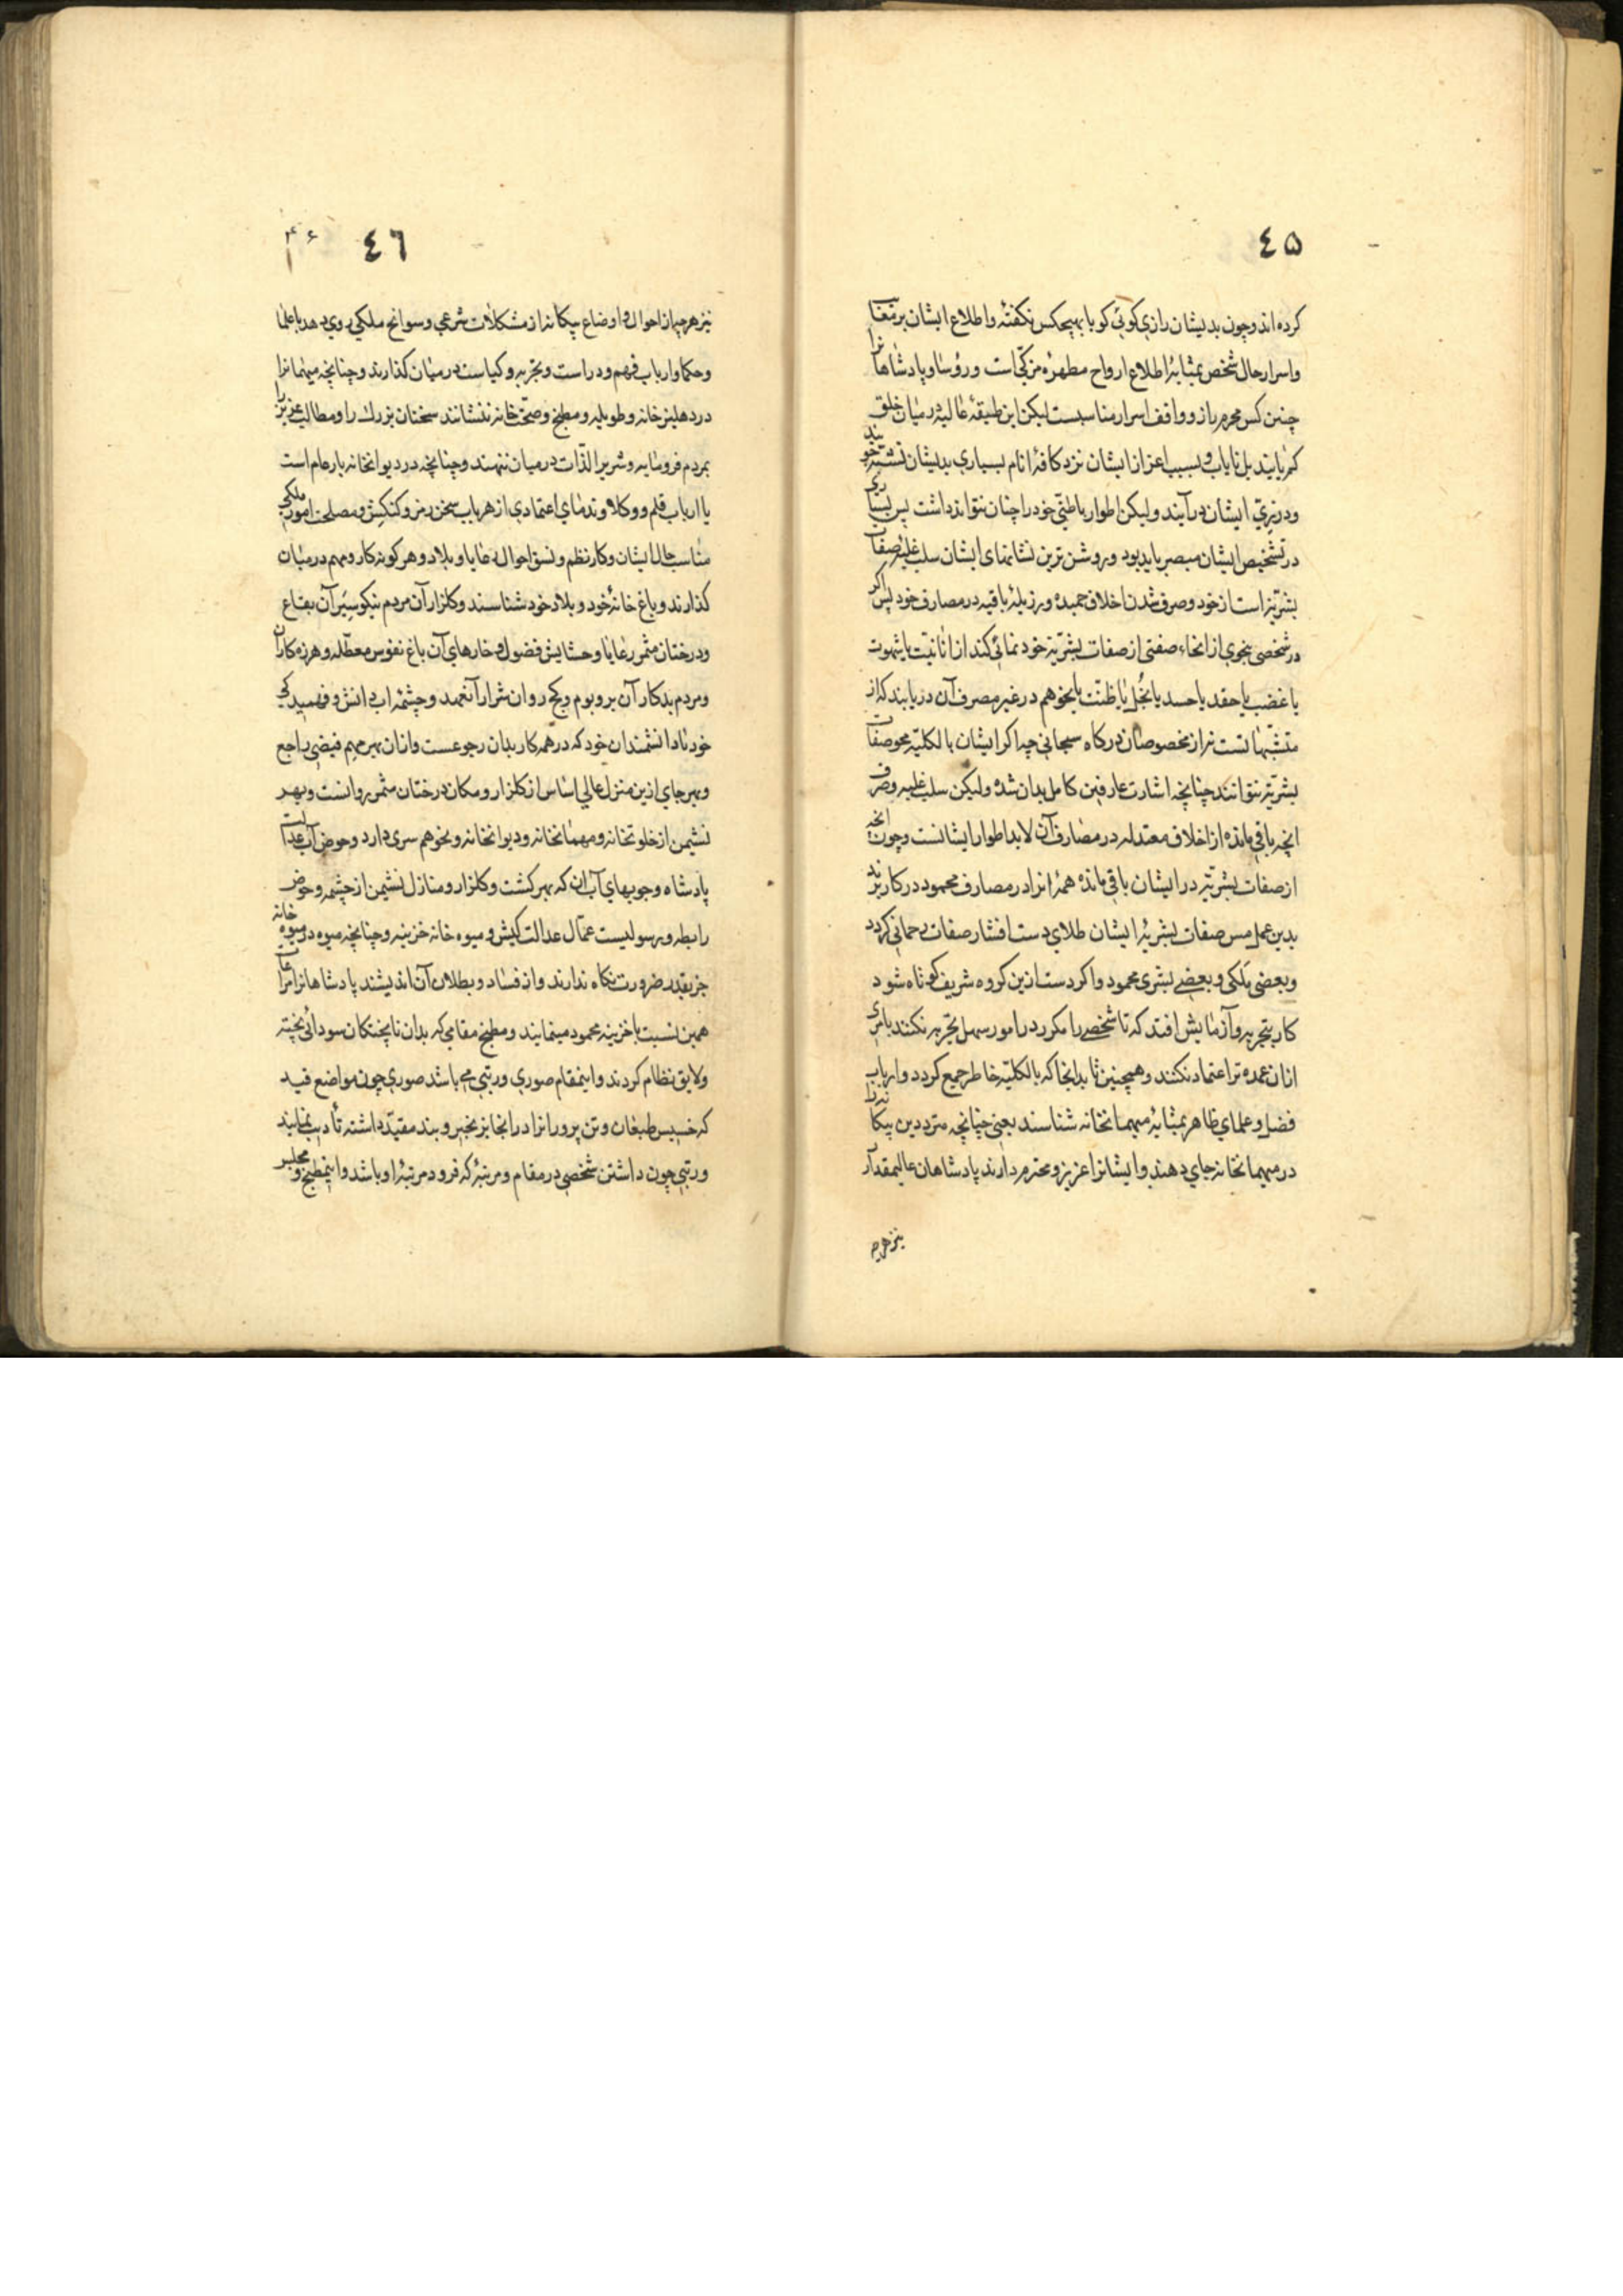 ٤٥
كرده اند و چون بديشان رازي كوئي كويا بهيچكس نكفتهٔ و اطلاع ايشان بر مغيبات
و اسرار حال شخص بمثابهٔ اطلاع ارواح مطهرهٔ مزكّي است و رؤسا و پادشاهانرا
چنين كس محرم راز و واقف اسرار مناسبست ليكن اين طبقهٔ عاليه در ميان خلق
كم يابند بل ناياب و بسبب اعزاز ايشان نزد كافهٔ انام بسياري بديشان تشبّه جويند
و در زيّ ايشان درآيند وليكن اطوار باطنيّ خود را چنان نتوانند داشت پس بسياري
در تشخيص ايشان مبصر بايد بود و روشن ترين نشانهاي ايشان سلب غلبهٔ صفات
بشريّت است از خود و صرف شدن اخلاق حميده و رزيلهٔ باقيه در مصارف خود پس اكر
در شخصي بنحوي از انحاء صفتي از صفات بشريّت خود نمائي كند از انانيّت يا شهوت
يا غضب يا حقد يا حسد يا بخل يا ظنّت يا بخو هم در غير مصرف آن دريابند كه از
متشبّهانست نه از مخصوصان دركاه سبحاني چه اكر ايشان بالكليّه محو صفات
بشريّت نتوانند چنانچه اشارت عارفين كامل بدان شده وليكن سلب غلبه و صرف
انچه باقي مانده از اخلاق معتدله در مصارف آن لابد اطوار ايشانست و چون انچه
از صفات بشريّه در ايشان باقي مانده همه را در مصارف محمود در كار برند
بدين عمل مس صفات بشريهٔ ايشان طلاي دست افشار صفات رحماني كردد
و بعضي ملكي و بعضي بشري محمود و اكر دست ازين كروه شريف كوتاه شود
كار بتجربه و آزمايش افتد كه تا شخصي را مكرر در امور سهل تجربه نكنند بامري
ازان عمده تر اعتماد نكنند و همچنين تا بدانجا كه بالكليّه خاطر جمع كردد و ارباب
فضل و علماي ظاهر بمثابهٔ ميهمانخانه شناسند يعني چنانچه متردّدين بيكانه را
در ميهمانخانه جاي دهند و ايشانرا عزيز و محترم دارند پادشاهان عاليمقدار
نيز هرچه
٤٦
۴۶
نيز هرچه از احوال و اوضاع بيكانه از مشكلات شرعي و سوانح ملكي روي دهد با علما
و حكما و ارباب فهم و دراست و تجربه و كياست در ميان كذارند و چنانچه ميهمانرا
در دهليز خانه و طويله و مطبخ و صحّت خانه ننشانند سخنان بزرك را و مطالب عزيز را
بمردم فرومايه و شرير الذّات در ميان ننهند و چنانچه در ديوانخانه بار عام است
با ارباب قلم و وكلا و ندماي اعتمادي از هر باب سخن رمز و كنكش و مصلحت امور ملكي
مناسب حال ايشان و كار نظم و نسق احوال رعايا و بلاد و هر كونه كار و مهم در ميان
كذارند و باغ خانهٔ خود و بلاد خود شناسند و كلزار آن مردم نيكو سِيَر آن بقاع
و درختان مثمر رعايا و حشايش فضول و خارهاي آن باغ نفوس معطّله و هرزه كاران
و مردم بدكار آن بر و بوم و كج روان شرار آنعهد و چشمهٔ اب دانش و فهميدكي
خود با دانشمندان خود كه در همه كار بدان رجوعست و ازان بهر مهم فيضي راجع
و بهر جاي ازين منزل عالي اساس از كلزار و مكان درختان مثمر روانست و بهر
نشيمن از خلوتخانه و مهمانخانه و ديوانخانه و نحو هم سري دارد و حوض آب عدالت
پادشاه و جويهاي آب ان كه بهر كشت و كلزار و منازل نشيمن از چشمه و حوض
رابطه و رسوليست عمّال عدالت كيش و ميوه خانه خزينه و چنانچه ميوه در ميوه خانه
جز بقدر ضرورت نكاه ندارند و از فساد و بطلان آن انديشند پادشاهانرا مراعات
همين نسبت با خزينه محمود مينمايند و مطبخ مقامي كه بدان ناپختكان سودائي پخته
و لايق نظام كردند و اينمقام صوري و رتبي مي باشد صوري چون مواضع قيد
كه خسيس طبعان و تن پرورانرا در انجا بزنجير و بند مقيّد داشته تأديب نمايند
و رتبي چون داشتن شخصي در مقام و مرتبهٔ كه فرود مرتبهٔ او باشد و اينمطبخ و مجلس